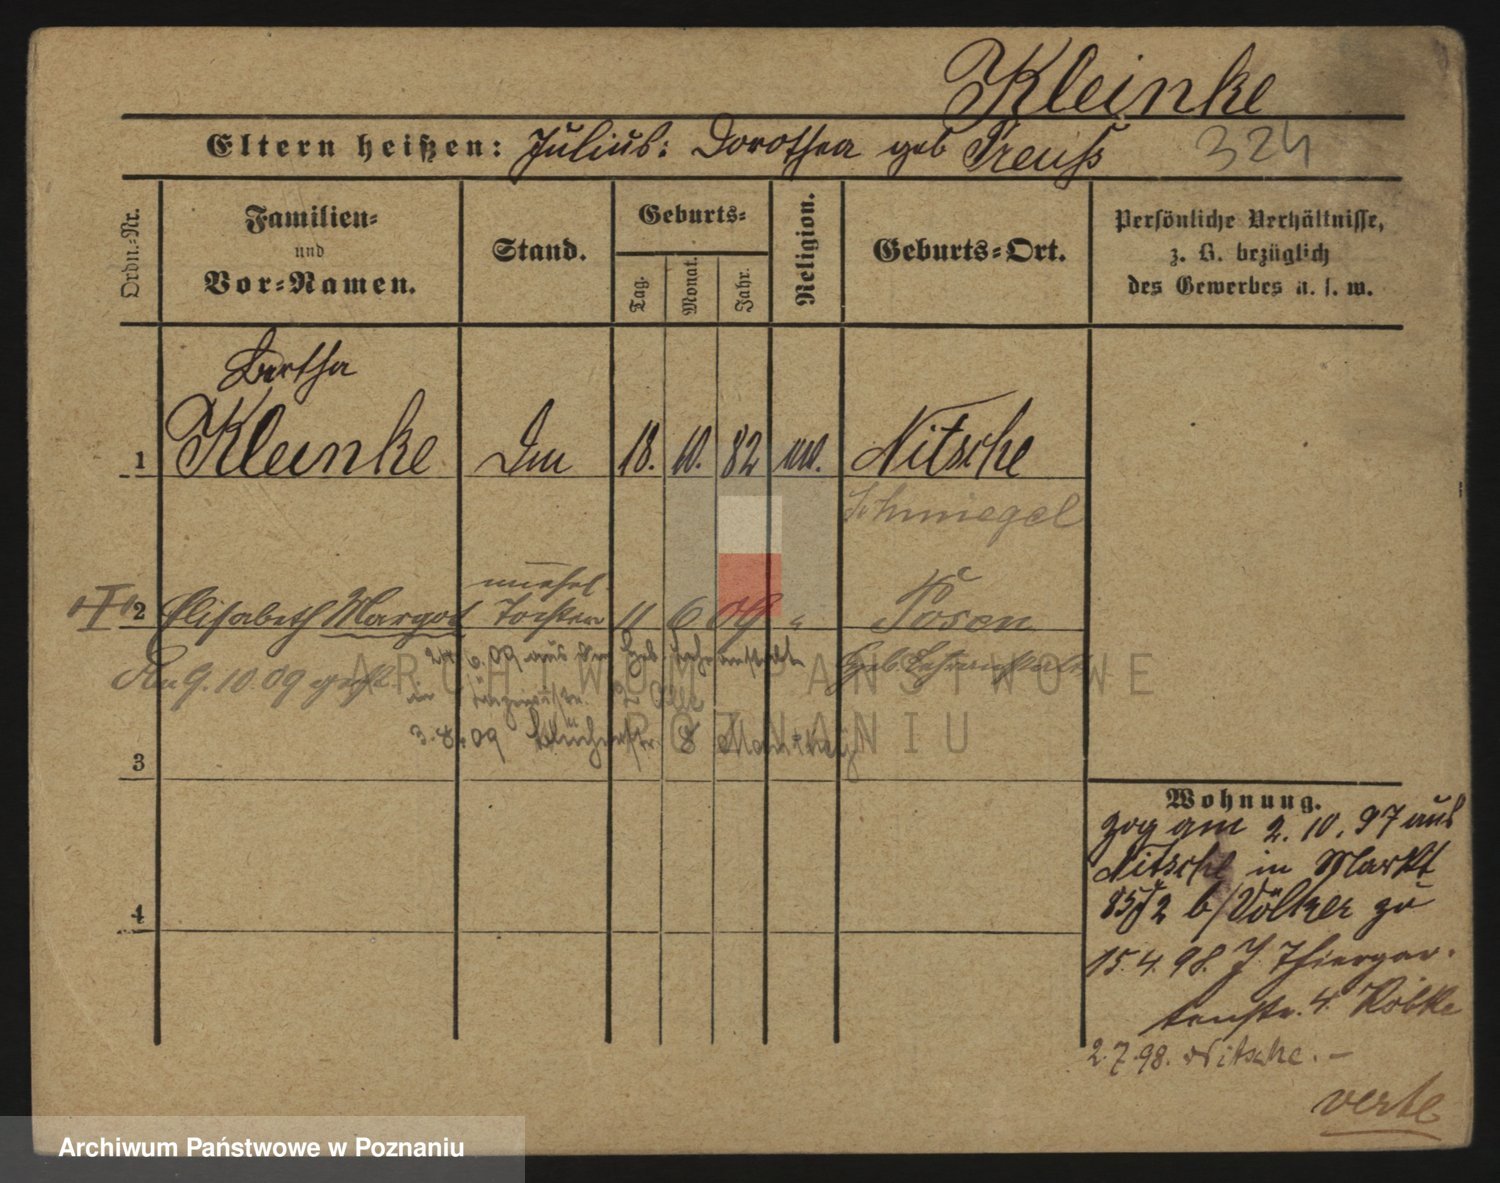 Kleinke
Eltern heißen: Julius: Dorothea geb Preuß 324
Ordn.-Nr.
Familien-
und
Vor-Namen.
Stand.
Geburts-
Tag.
Monat.
Jahr.
Religion.
Geburts-Ort.
Persönliche Verhältnisse,
z. B. bezüglich
des Gewerbes u. s. w.
Bertha
1 Kleinke 18. 10. 82 Nitsche
Schmiegel
unehel.
2 Elisabeth Margot Tochter 11 6 09 " Posen
9.10.09
3.8.09 8
3
4
Wohnung.
zog am 2.10.97 aus
Nitsche in Markt
85/2 b/Völker zu
15.4.98. Thiergar-
tenstr. 4.
2.7.98. Nitsche. -
verte
ARCHIWUM PAŃSTWOWE
POZNANIU
Archiwum Państwowe w Poznaniu